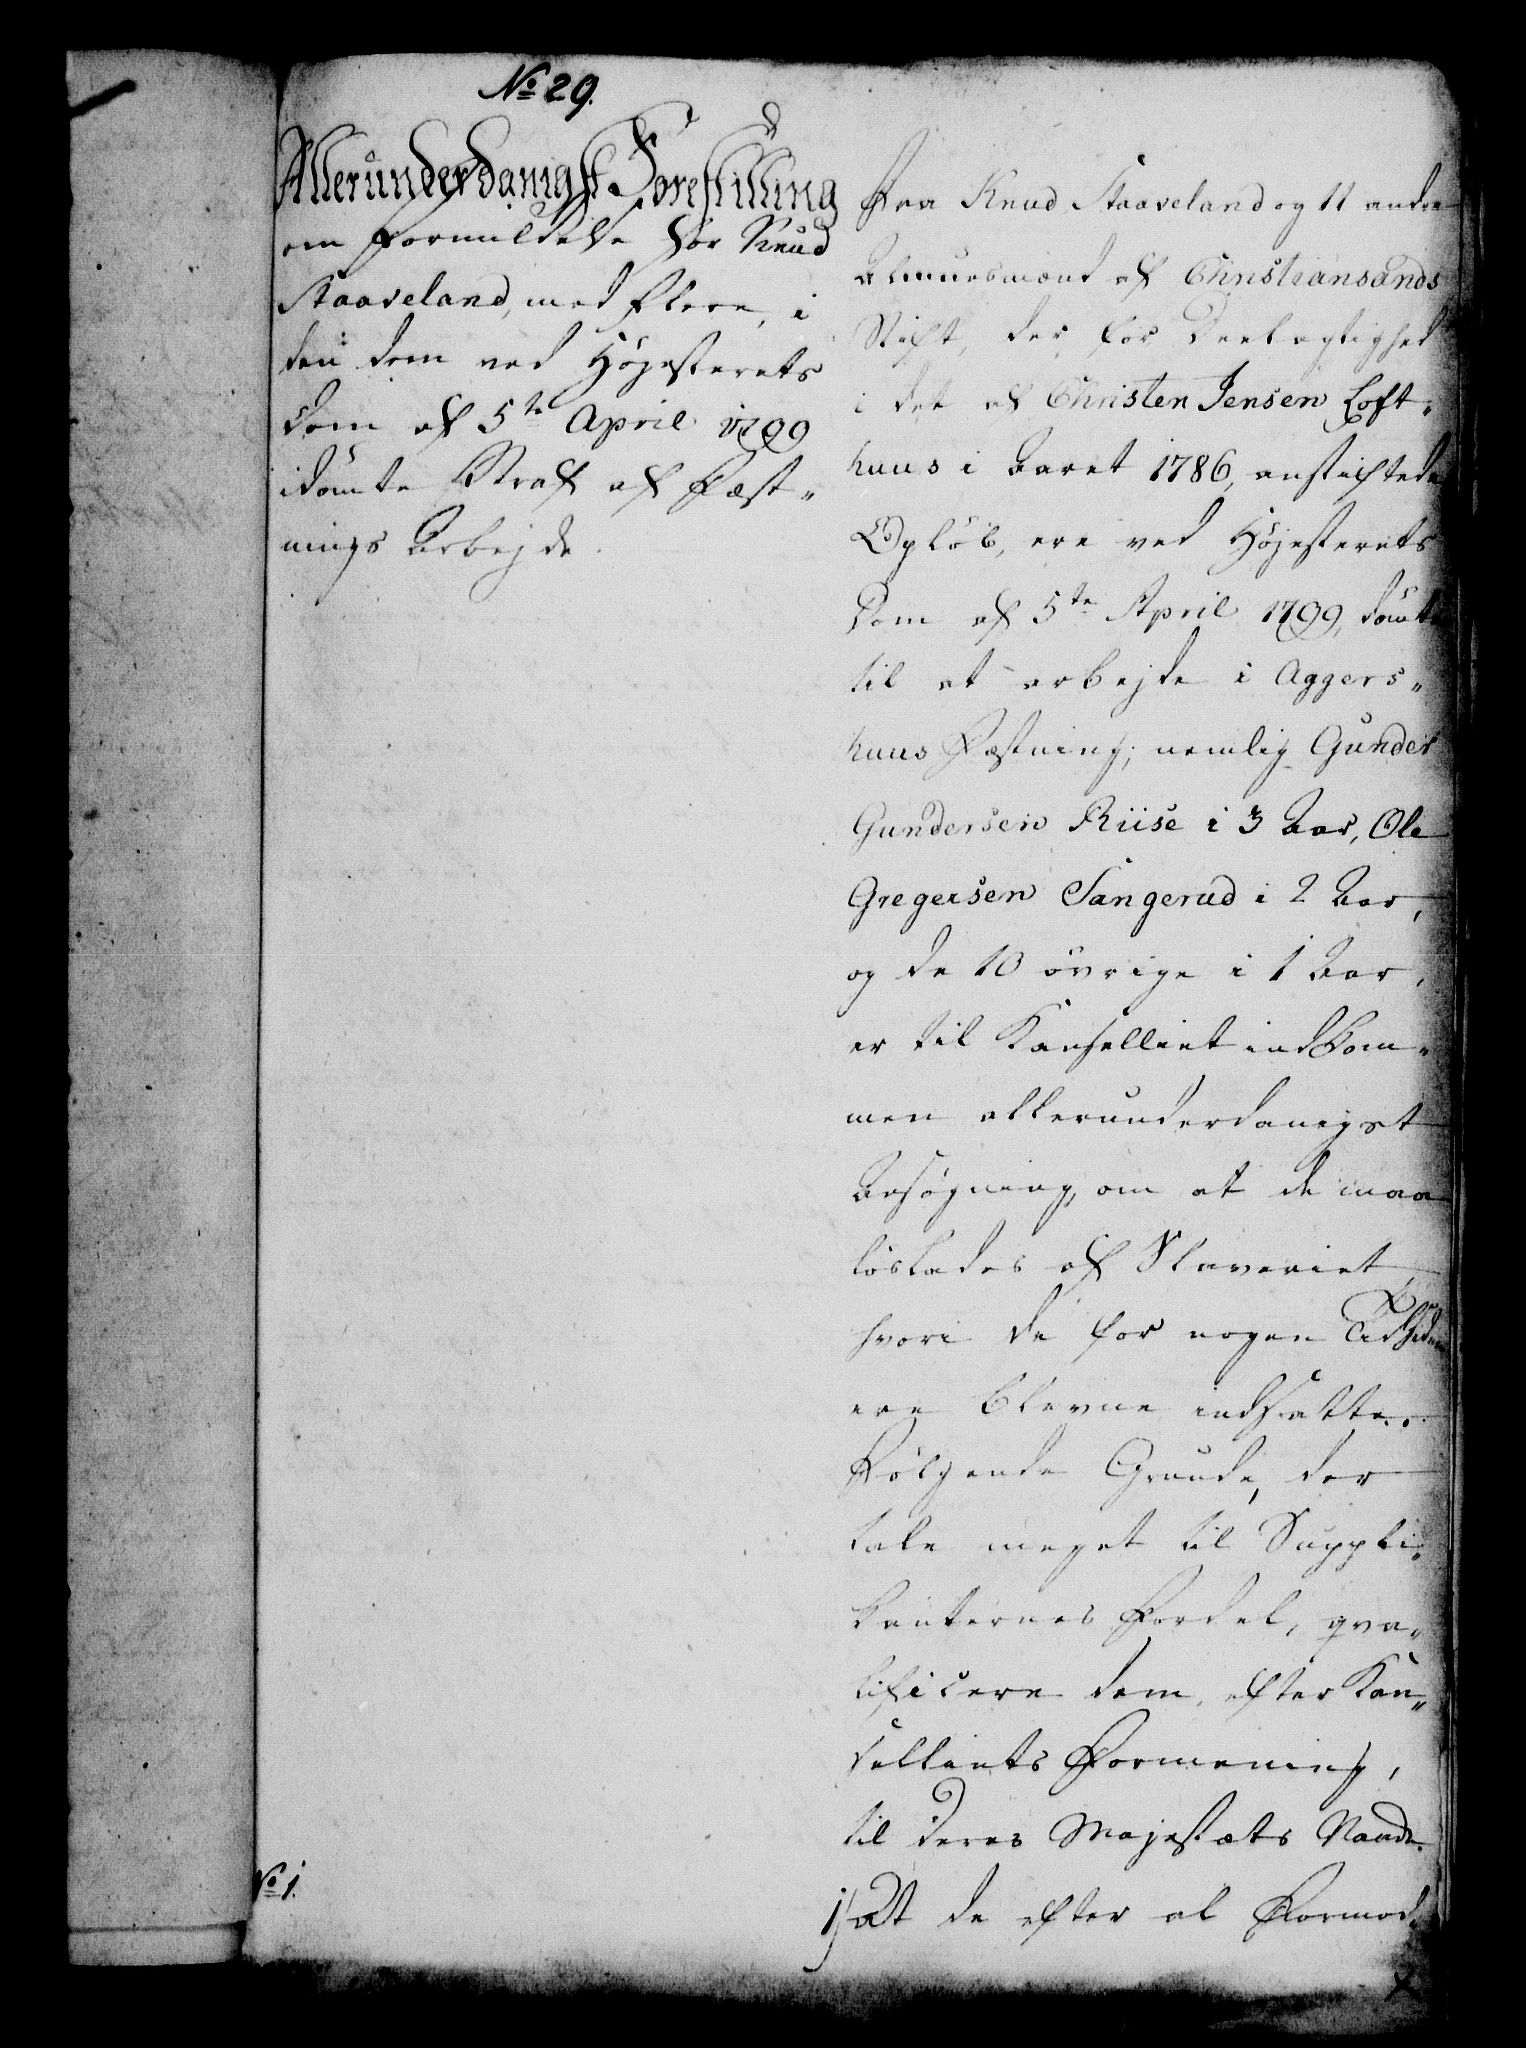 No 29.
Allerunderdanigst Forestilling
om Formildelse for Knud
Staaveland, med flere, i
den dem ved Højesterets
Dom af 5te April 1799
idömte Straf af Fæst-
nings Arbejde.
Fra Knud Staaveland og 11 andre
Almuesmænd af Christiansands
Stift, der for Deelagtighed
i det af Christen Jensen Loft-
huus i Aaret 1786, anstiftede
Opløb, ere ved Højesterets
Dom af 5te April 1799, dömte
til at arbejde i Aggers-
huus Fæstning; nemlig Gunder
Gundersen Riise i 3 Aar, Ole
Gregersen Sangerud i 2 Aar,
og de 10 övrige i 1 Aar,
er til Kanselliet indkom-
men allerunderdanigst
Ansøgning, om at de maa
løslades af Slaveriet,
hvori de for nogen Tid siden
ere blevne indsatte.
Følgende Grunde, der
tale meget til Suppli-
kanternes Fordel, qva-
lificere dem, efter Kan-
selliets Formening,
til Deres Majestæts Naade.
No 1.
1) At de efter al Formod-